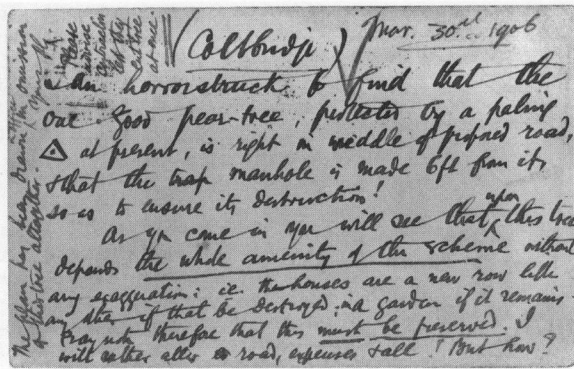 (Coltbridge) Mar. 30th 1906
I am horrorstruck to find that the
one good pear-tree, protected by a paling
△ at present, is right in middle of proposed road,
& that the trap manhole is made 6ft from it,
so as to ensure its destruction!
As you come in you will see that upon this tree
depends the whole amenity of the scheme without
any exaggeration: i.e. the houses are a new row like
any other if that be destroyed: in a garden if it remains.
Pray note therefore that this must be preserved. I
will rather alter road, expenses & all! But how?
The plan has been drawn with omission
of this tree altogether.
Please
advise
contractor
lest they
cut tree
at once.